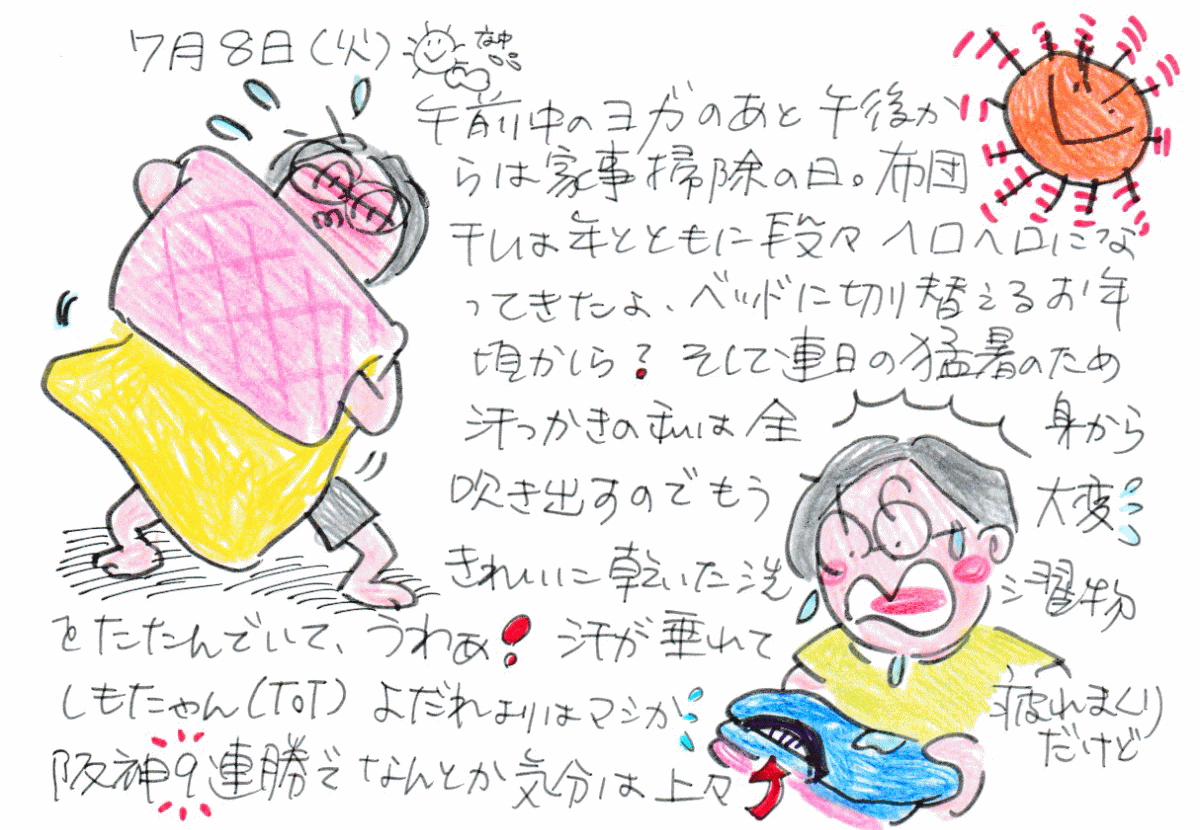 7月8日(火) な中
午前中のヨガのあと午後か
らは家事掃除の日。布団
干しは年とともに段々ヘロヘロにな
ってきたよ、ベッドに切り替えるお年
頃かしら? そして連日の猛暑のため
汗っかきの私は全身から
吹き出すのでもう大変
きれいに乾いた洗濯物
をたたんでいて、うわぁ! 汗が垂れて
しもたやん(ToT) よだれよりはマシか
疲れまくり
だけど
阪神9連勝でなんとか気分は上々